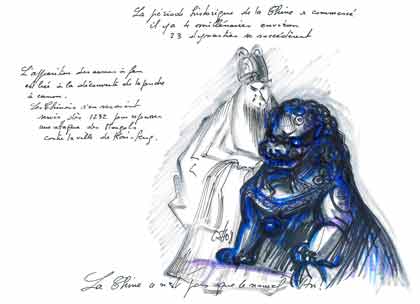 La période historique de la Chine a commencé
il y a 4 millénaires environ
23 dynasties se succédèrent
L'apparition des armes à feu
est liée à la découverte de la poudre
à canon.
Les Chinois s'en seraient
servis dès 1232 pour repousser
une attaque des Mongols
contre la ville de Kai-feng.
La Chine n'est pas que le nouvel